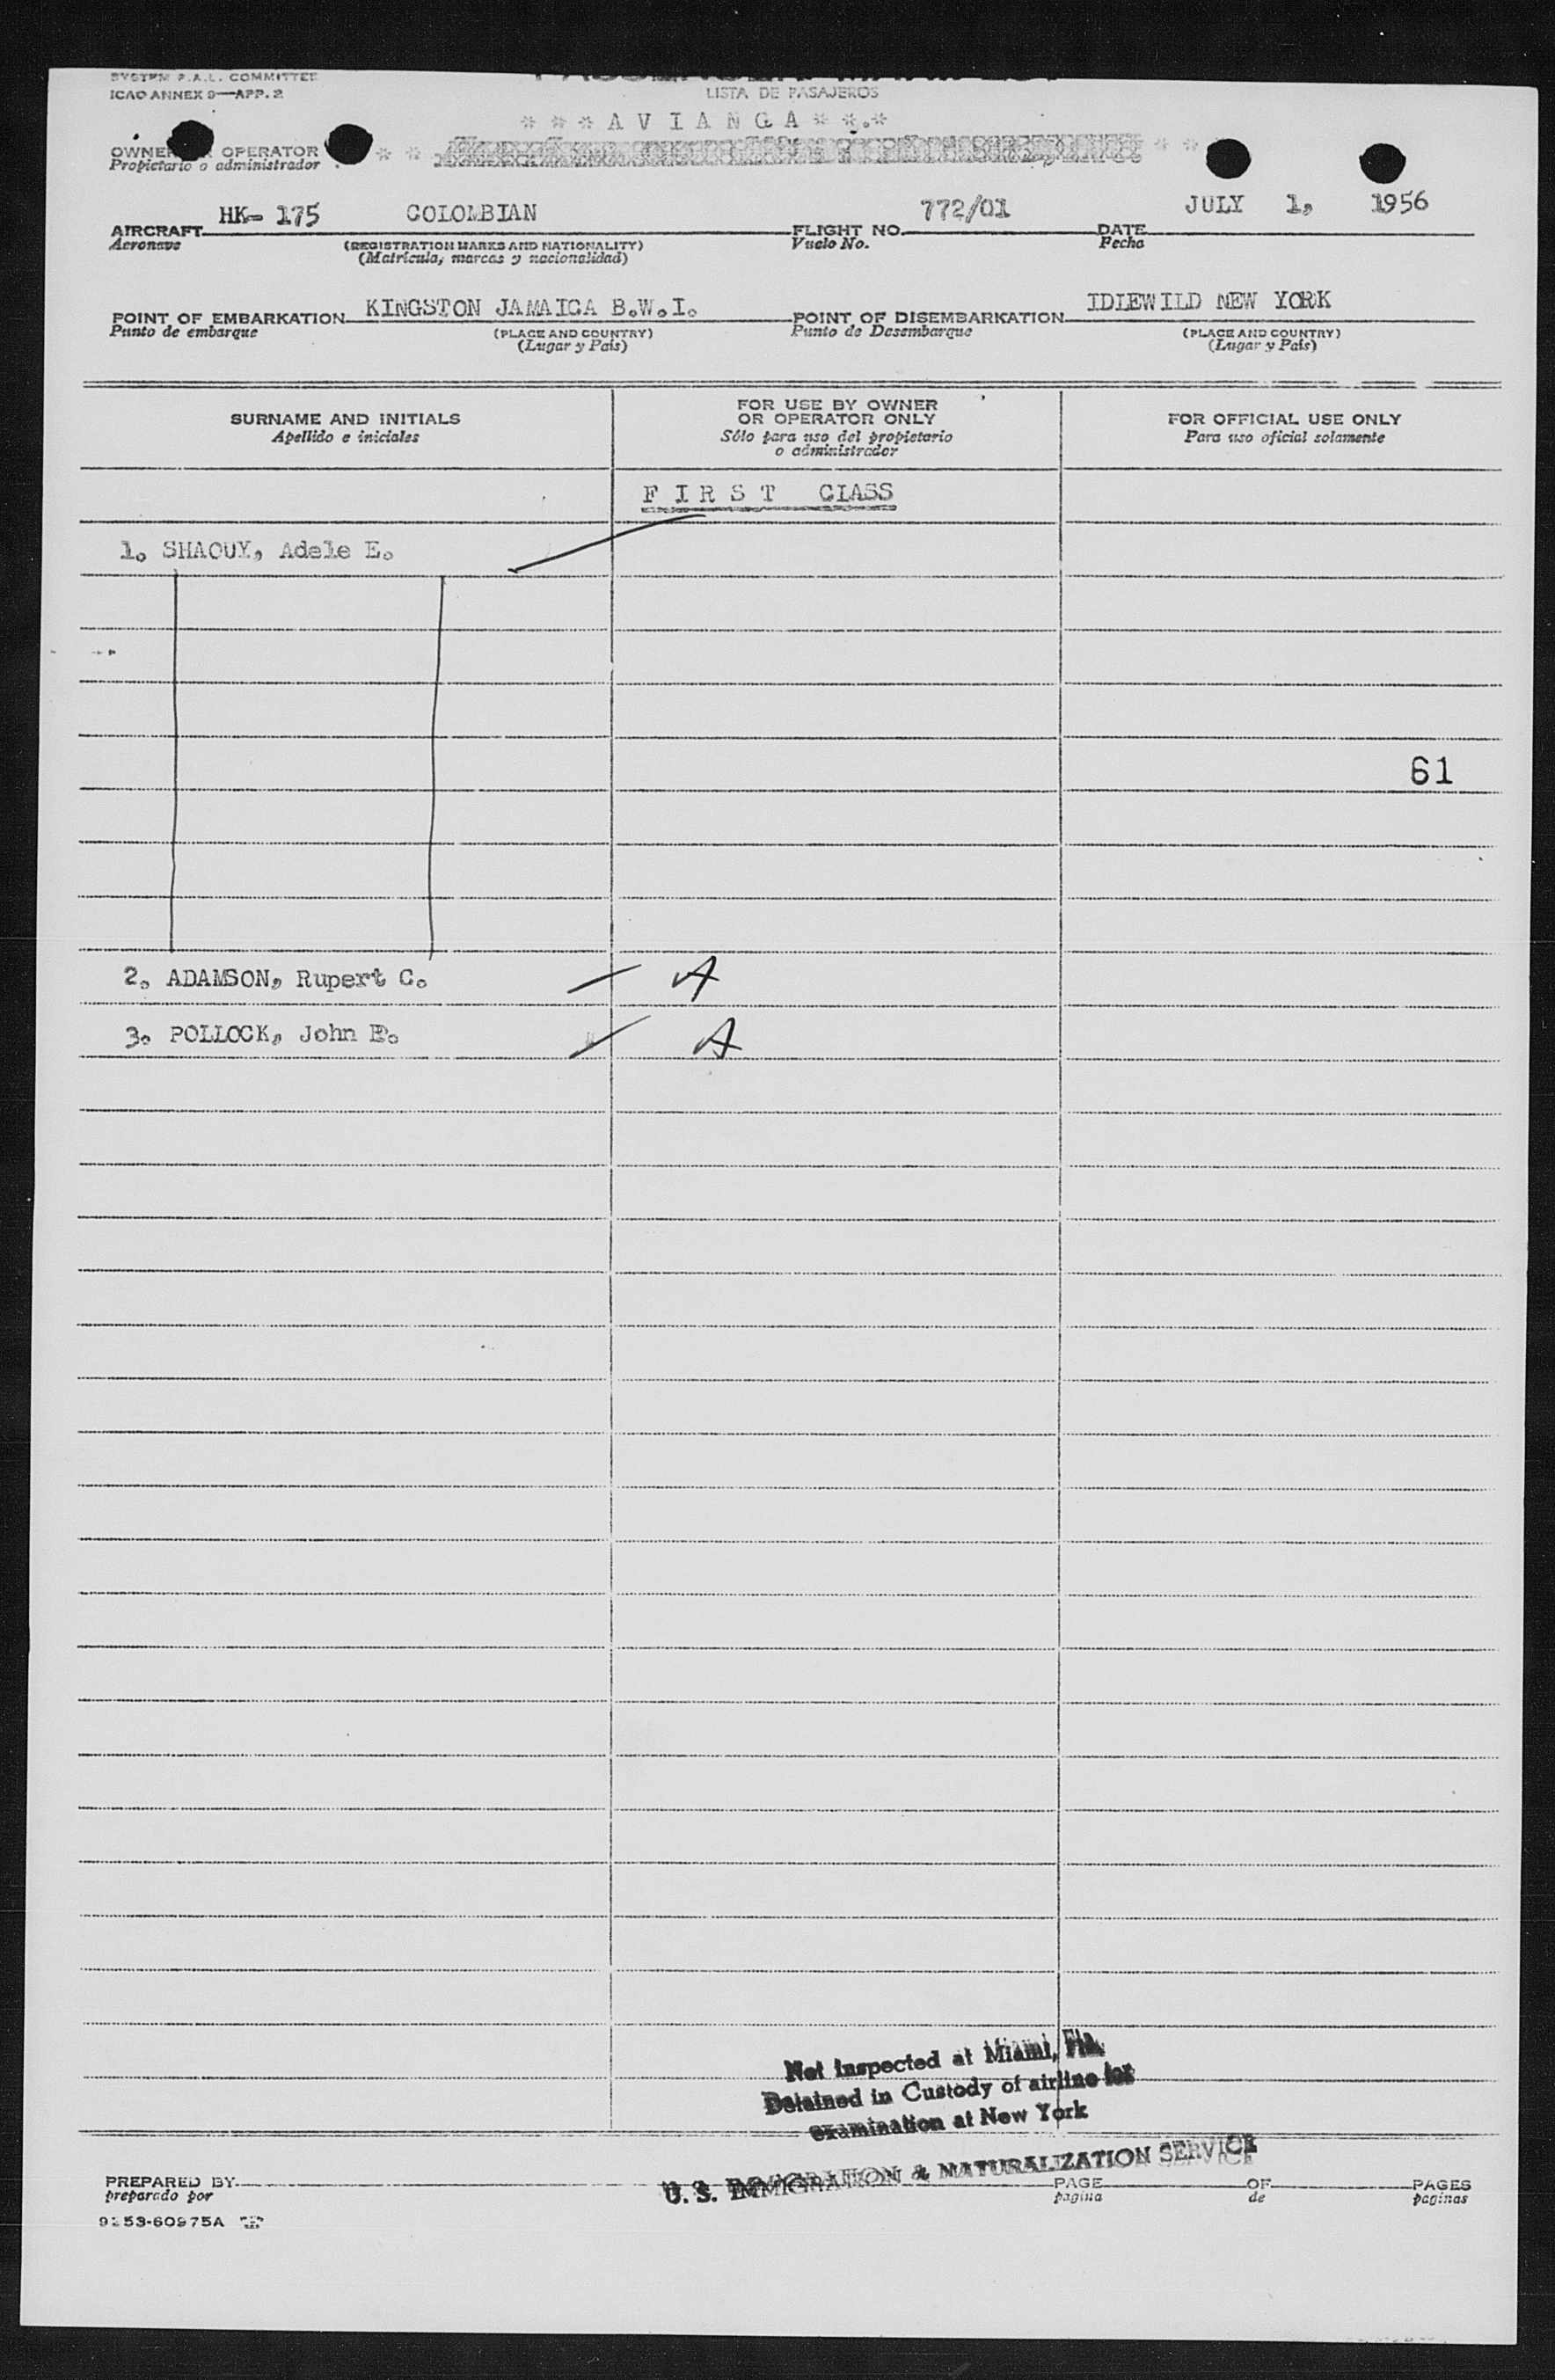 SYSTEM F.A.L. COMMITTEE
ICAO ANNEX 9—APP. 2
PASSENGER MANIFEST
LISTA DE PASAJEROS
* * * A V I A N C A * * . *
OWNER OR OPERATOR
Propietario o administrador
AIRCRAFT HK- 175 COLOMBIAN FLIGHT NO. 772/01 DATE JULY 1, 1956
Aeronave (REGISTRATION MARKS AND NATIONALITY) Vuelo No. Fecha
(Matrícula, marcas y nacionalidad)
POINT OF EMBARKATION KINGSTON JAMAICA B.W.I. POINT OF DISEMBARKATION IDLEWILD NEW YORK
Punto de embarque (PLACE AND COUNTRY) Punto de Desembarque (PLACE AND COUNTRY)
(Lugar y País) (Lugar y País)
SURNAME AND INITIALS
Apellido e iniciales
FOR USE BY OWNER
OR OPERATOR ONLY
Sólo para uso del propietario
o administrador
FOR OFFICIAL USE ONLY
Para uso oficial solamente
F I R S T CLASS
1. SHAOUY, Adele E.
61
2. ADAMSON, Rupert C. A
3. POLLOCK, John E. A
Not Inspected at Miami, Fla.
Detained in Custody of airline for
examination at New York
U. S. IMMIGRATION & NATURALIZATION SERVICE
PREPARED BY PAGE OF PAGES
preparado por pagina de paginas
9253-60975A